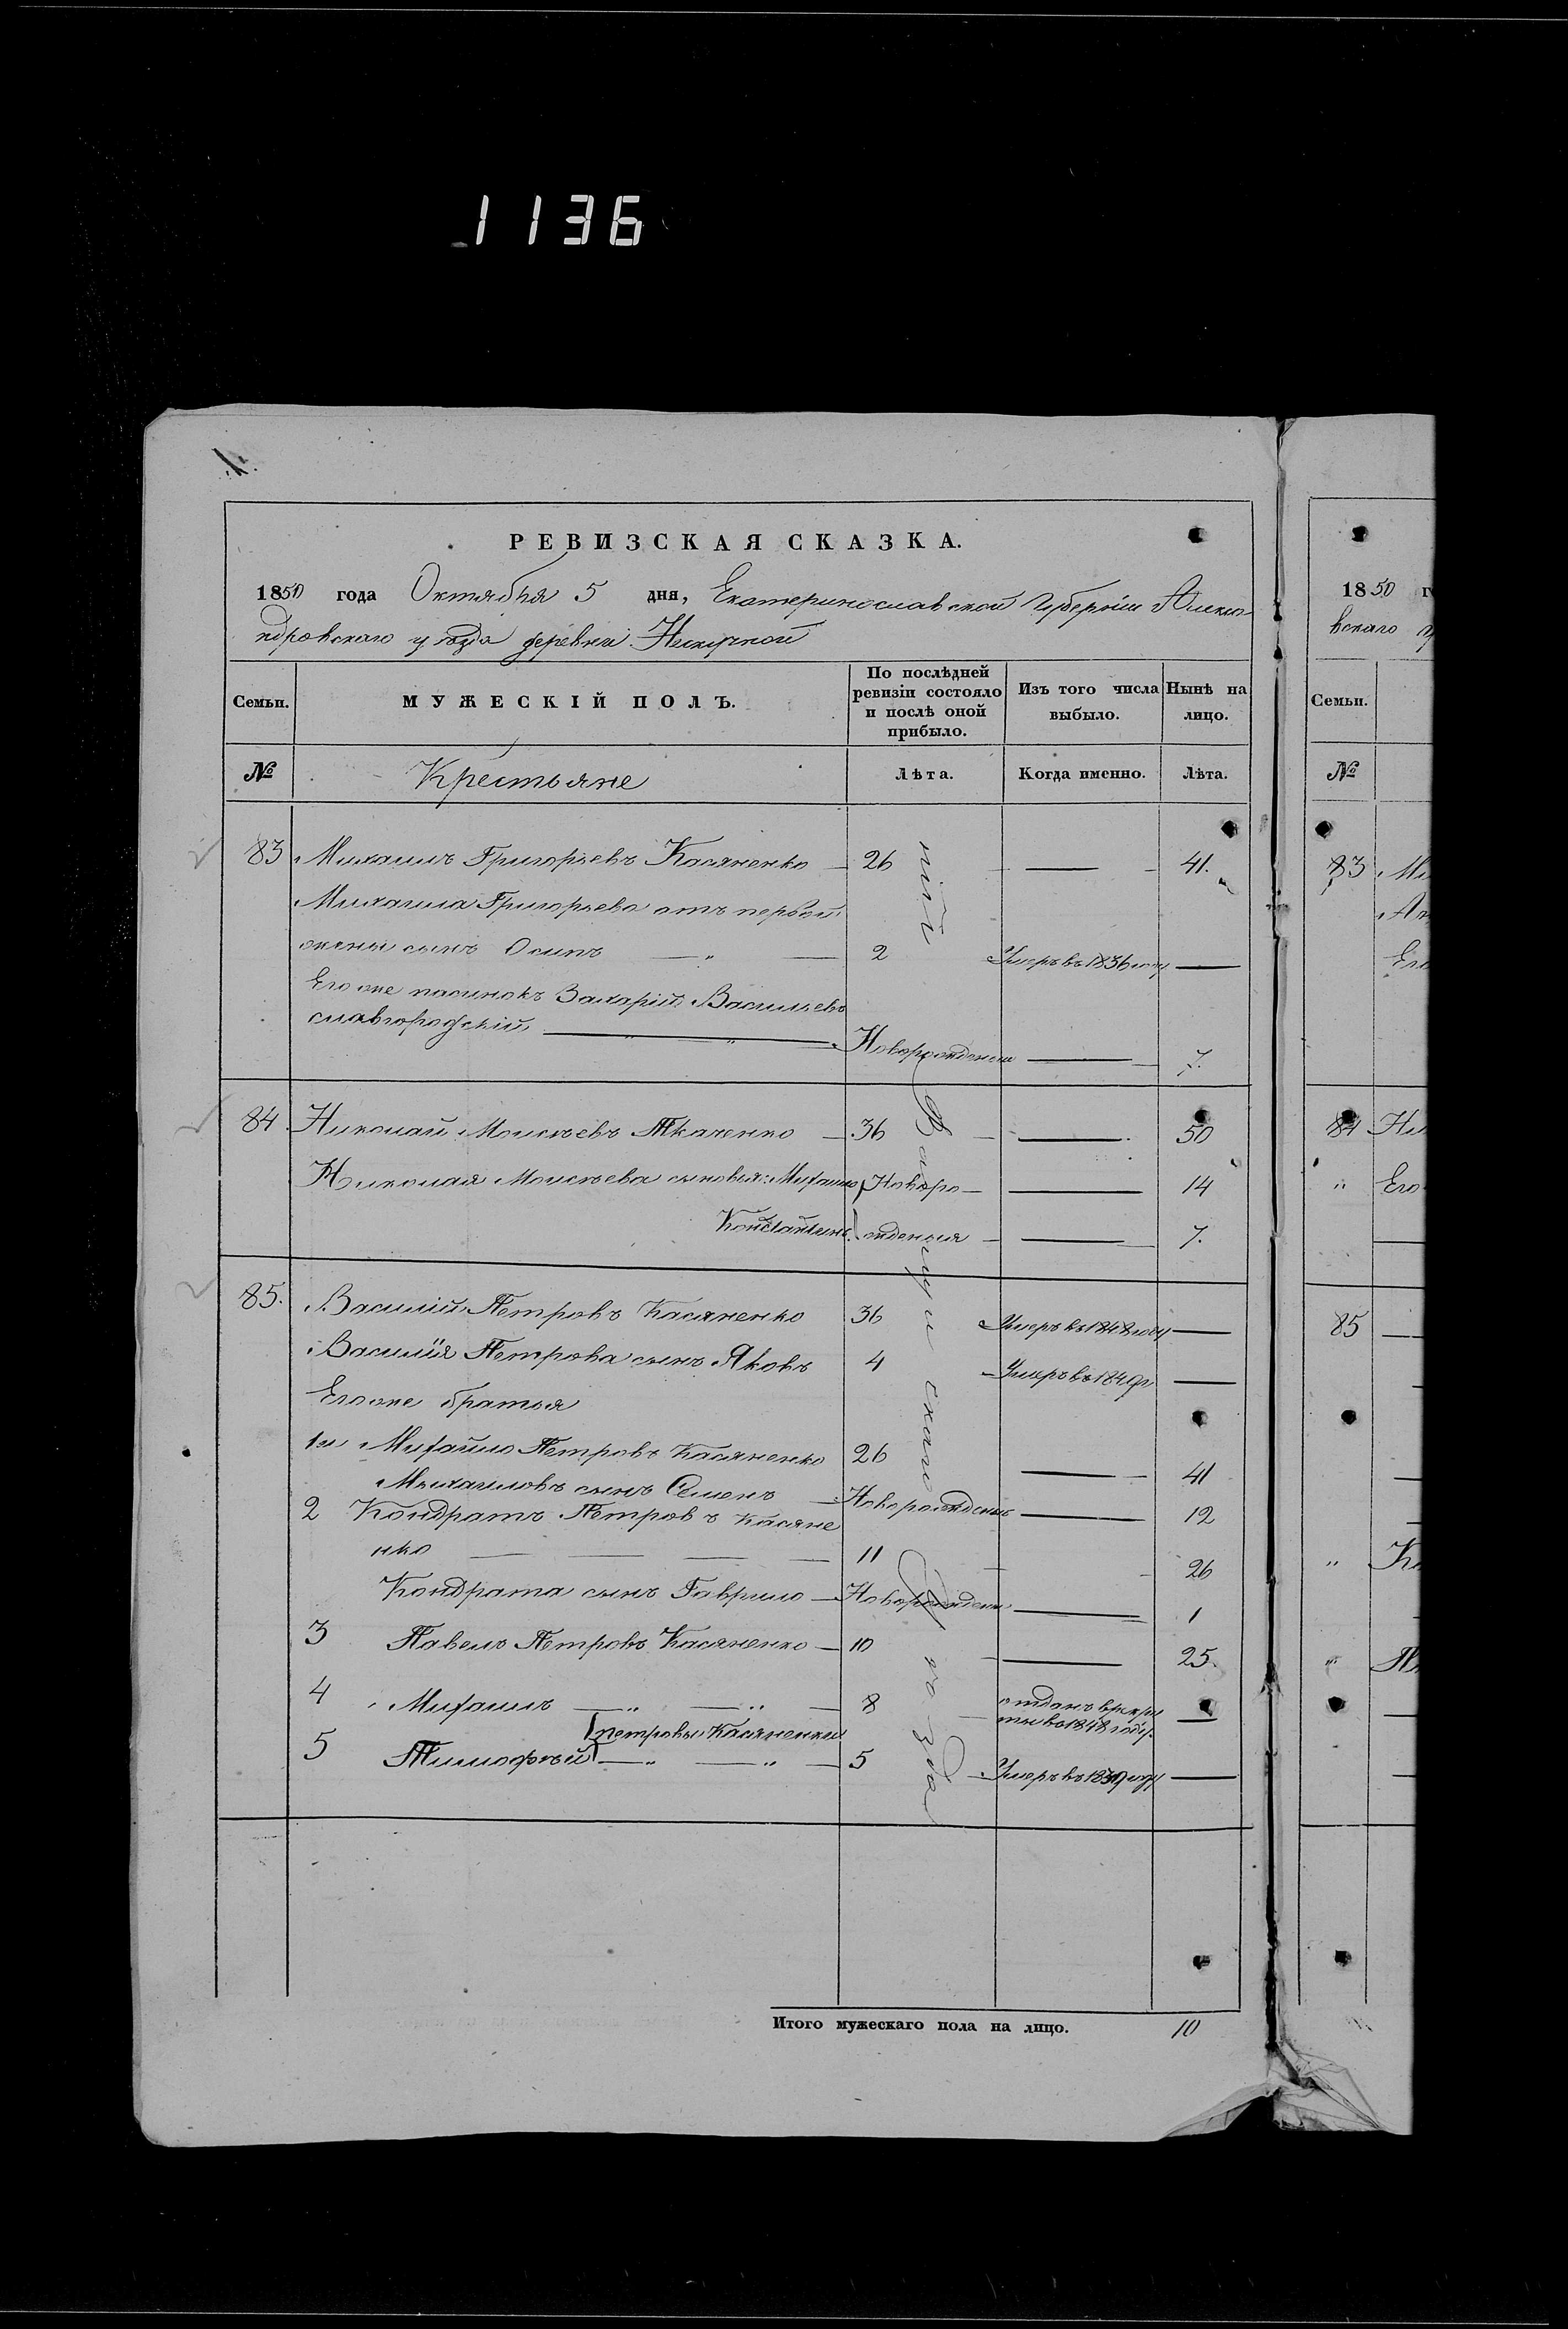 1136
РЕВИЗСКАЯ СКАЗКА.
1850 года Октября 5 дня, Екатеринославской Губерніи Алекса
ндровскаго уѣзда деревни
Семьи. МУЖЕСКІЙ ПОЛЪ. По послѣдней ревизіи состояло и послѣ оной прибыло. Изъ того числа выбыло. Нынѣ на лицо.
№ Крестьяне Лѣта. Когда именно. Лѣта.
83 Михаилъ Григорьевъ Касяненко 26 — 41.
Михаила Григорьева отъ первой
жены сынъ Осипъ — " — 2 Умеръ въ 1836 году —
Его же пасинокъ Захарій Васильевъ
славгородскій — " — " — Новорожденъ — 7.
84 Николай Моисѣевъ Ткаченко — 36 — 50
Николая Моисѣева сыновья: Михайло Новоро — 14
Константинъ жденныя — 7.
85. Василій Петровъ Касяненко 36 Умеръ въ 1848 году —
Василія Петрова сынъ Яковъ 4 Умеръ въ 1849 г —
Его же братья
1й Михайло Петровъ Касяненко 26 — 41
Михайловъ сынъ Семенъ — Новорожденъ — 12
2 Кондратъ Петровъ Касяне
нко — 11 26
Кондрата сынъ Гаврило — Новорожденъ — 1
3 Павелъ Петровъ Касяненко — 10 — 25.
4 Михаилъ — " — " — 8 отданъ врекру
ты въ 1848 году. —
петровы Касяненки
5 Тимофѣй — " — " — 5 Умеръ въ году —
Итого мужескаго пола на лицо. 10
уѣзда
1850 г
вскаго у
Семьи.
№
83 Ми
Его
84 Ни
" Его
85 —
"
"